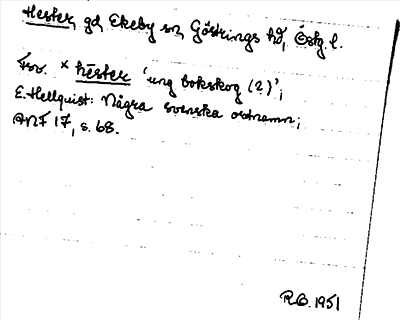 Hester, gd Ekeby sn, Göstrings hd, Östg. l.
Fsv. * hēster 'ung bokskog (?)';
E. Hellquist: Några svenska ortnamn;
ANF 17, s. 68.
R.G. 1951